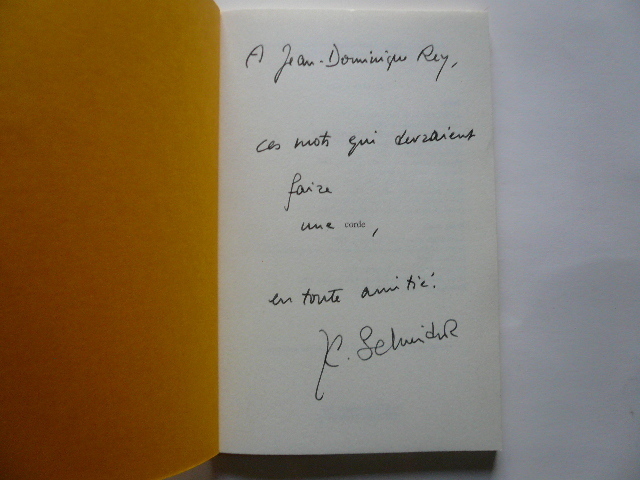 A Jean-Dominique Rey,
ces mots qui devraient
faire
une corde,
en toute amitié.
Schneider